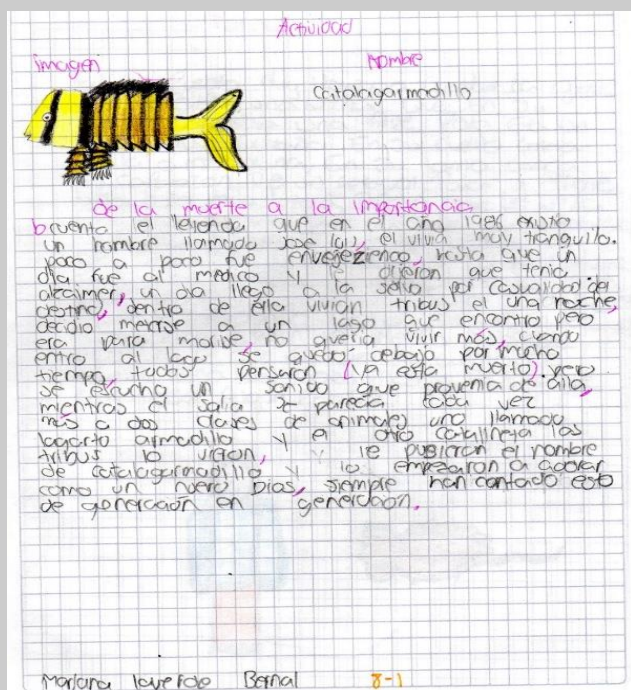 Actividad
imagen
Nombre
Catalagarmadillo
de la muerte a la importancia
cuenta el leienda que en el año 1986 existio
un hombre llamado Jose luis, el vivia muy tranquilo.
poco a poco fue envejeziendo, hasta que un
dia fue al medico y le dijeron que tenia
alzaimer, un dia llego a la selva por casualidad del
destino, dentro de élla vivian tribus el una noche,
decidio meterse a un lago que encontro pero
era para morise, no queria vivir más, cuando
entro al lago se quedo debajo por mucho
tiempo, todos pensaron (ya esta muerto). pero
se escucho un sonido que provenia de alla,
mientras el salia se parecia toda vez
más a dos clases de animales uno llamado
lagarto armadillo y el otro catalineta las
tribus lo vieron, y le pusieron el nombre
de catalagarmadillo y lo empezaron a adorar
como un nuevo Dios, siempre han contado esto
de generación en generación.
Mariana laverde Bernal 8-1